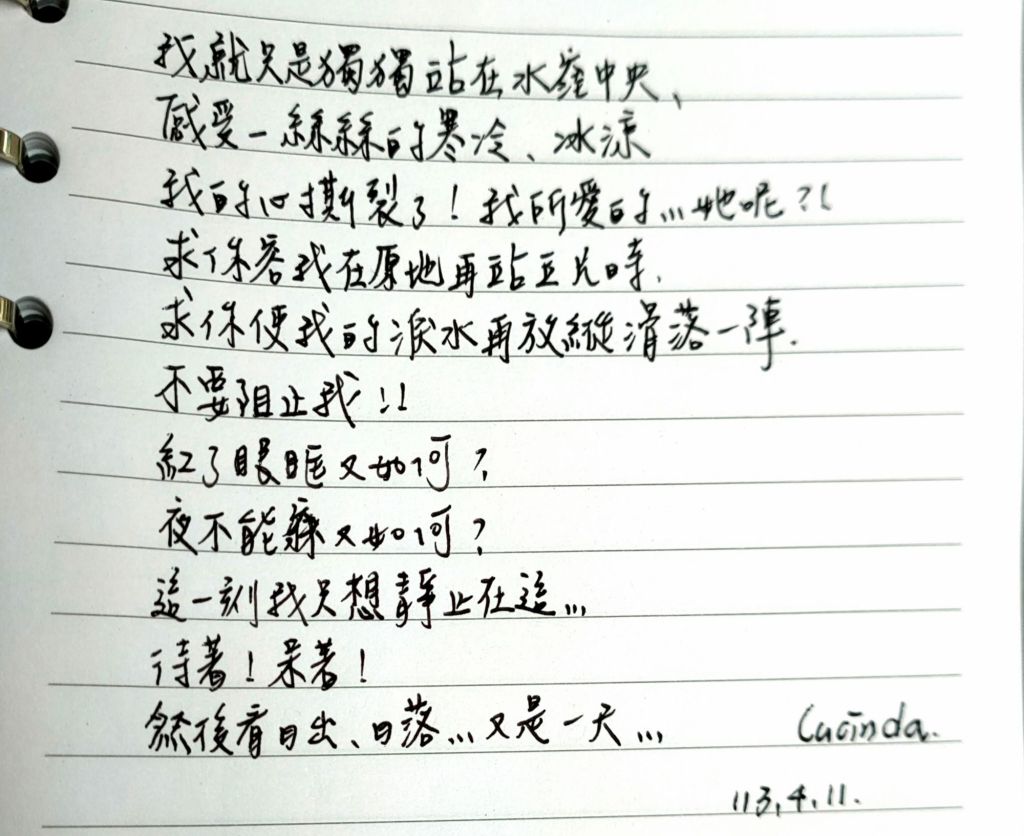 我就只是獨獨站在水窪中央、
感受一絲絲的寒冷、冰涼
我的心撕裂了！我所愛的...她呢？！
求你容我在原地再站立片時.
求你使我的淚水再放縱滑落一陣.
不要阻止我！！
紅了眼眶又如何？
夜不能寐又如何？
這一刻我只想靜止在這...
待著！呆著！
然後看日出、日落...又是一天...
Lucinda.
113.4.11.